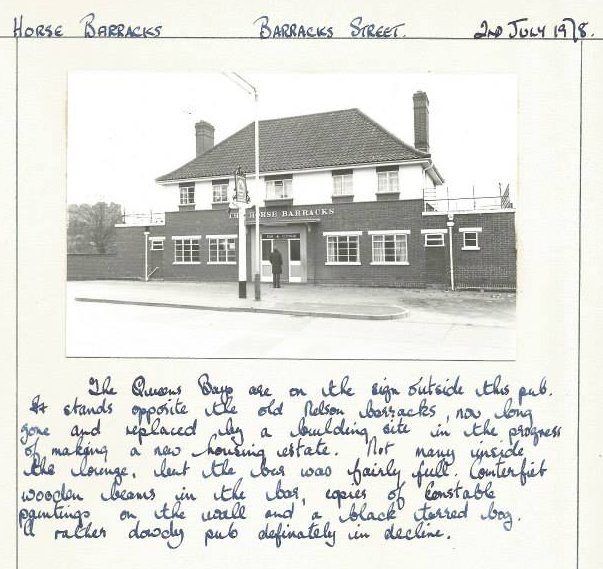 Horse Barracks Barracks Street. 2nd July 1978.
THE HORSE BARRACKS
The Queens Bays are on the sign outside this pub.
It stands opposite the old Nelson barracks, now long
gone and replaced by a building site in the progress
of making a new housing estate. Not many inside
the lounge, but the bar was fairly full. Counterfiet
wooden beams in the bar, copies of Constable
paintings on the wall and a black tarred bog.
A rather dowdy pub definately in decline.